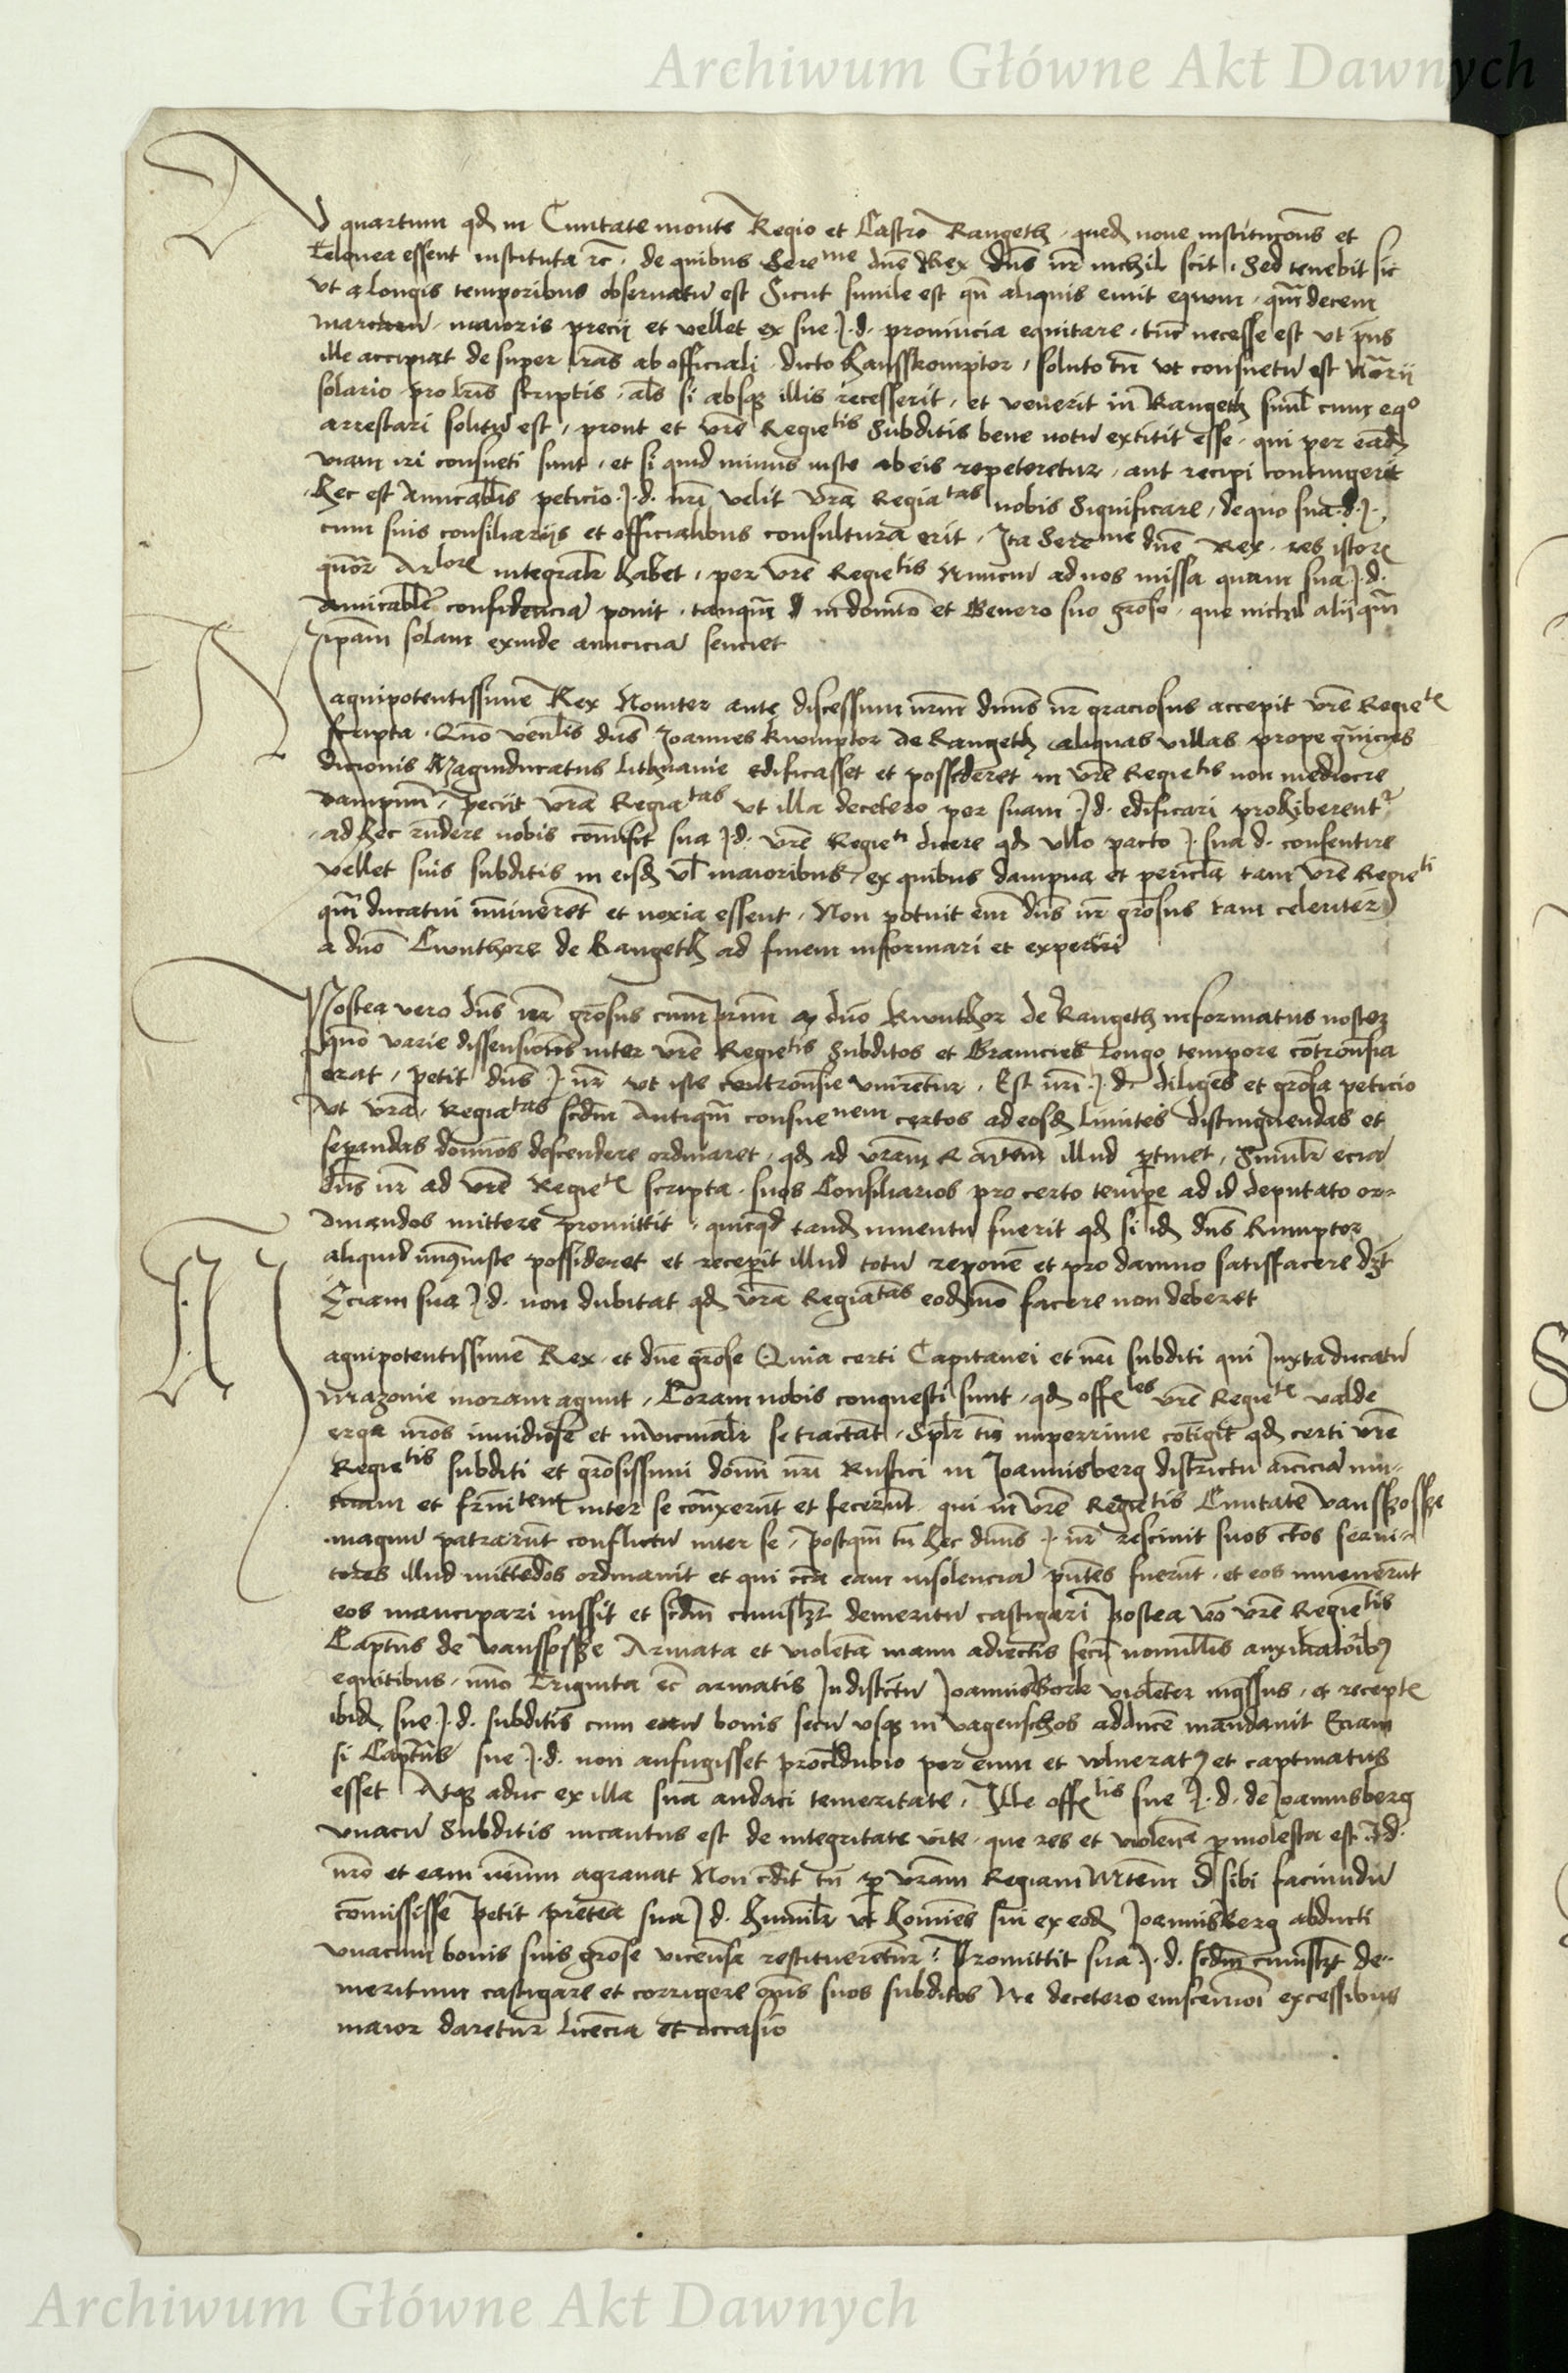 Archiwum Główne Akt Dawnych
Ad quartum qđ in Ciuitate monte Regio et Castro Rangeth, queđ noue institucões et
Telonea essent instituta rc̄. de quibus Sereme dnē Rex dn̄s nr̄ nichil scit, Sed tenebit sic
vt a longis temporibus obseruatū est Sicut simile est qn̄ aliquis emit equum, qm̄ decem
marcarū maioris precij et vellet ex sue J. d. prouincia equitare, tūc necesse est vt prius
ille accipiat desuper lrās ab officiali dicto hausskomptor, soluto tn̄ vt consuetū est Notarij
solario pro lrīs scriptis, als̄ si absqꝫ illis recesserit, et venerit in Rangeth simul cum equo
arrestari solitū est, prout et vrē Regietis Subditis bene notū extitit esse, qui per eandē
viam iri consueti sunt, et si quid minus iuste ab eis repeteretur, aut recipi contingerit
Hec est Amicabilis peticio J. d. nrī velit vrā Regiatas nobis Significare, de quo sua d. J.
cum suis consiliarijs et officialibus consultura erit, Ita Sereme dnē Rex, res istorꝫ
quor Ar integralr̄ habet, per vrē Regietis Nunciū ad nos missa quam sua J. d.
Amicabilr̄ confidenciā ponit, tanqm̄ in domīo et Genero suo grōso, que nichil alij qm̄
ipam̄ solam exinde amiciciā senciet
Magnipotentissime Rex Nouiter ante discessum nrūm dn̄us nr̄ graciosus accepit vrē Regietꝫ
scripta, Quō venlis dn̄s Joannes kwmptor de Rangeth aliquas villas prope grānicies
dicionis Magniducatus Lithuanie edificasset et possideret in vrē Regietis non mediocre
dampnum, peciit vrā Regiatas vt illa decetero per suam J. d. edificari prohiberentur
ad hec rn̄dere nobis comisit sua J. d. vrē Regieti dicere qđ vllo pacto J. sua d. consentire
vellet suis subditis in eisđ vl̄ maioribus, ex quibus dampna et pericla tam vrē Regieti
qm̄ ducatui īminerēt et noxia essent, Non potuit em̄ dn̄s nr̄ grōsus tam celeriter
a dnō Cwnthore de Rangeth ad finem informari et expediri
Postea vero dn̄s nr̄ grōsus cumprimū a dnō kwnthor de Rangeth informatus
quō varie dissensiones inter vrē Regietis Subditos et Granicies longo tempore cōtrouersia
erat, petit dn̄s J. nr̄ vt iste controuersie vnirentur, Est nrī J. d. diligēs et grōsa peticio
Vt vrā Regiatas scdm̄ Antiqm̄ consuenem certos ad eosđ limites distinguendas et
sepandas domīos descendere ordinaret, qđ ad vrām R artem illud ptinet, Similr̄ eciā
dn̄s nr̄ ad vrē Regietꝫ scripta suos Consiliarios pro certo tempe ad id deputato or-
dinandos mittere promittit, quicqđ tandē inuentū fuerit qđ si iđ dn̄s kumptor
aliquid iniuste possideret et receperit illud totū reponē et pro damno satisfacere dꝫt
Eciam sua J. d. non dubitat qđ vrā Regiatas eođmō facere non deberet
Magnipotentissime Rex et dnē grōse Quia certi Capitanei et nrī subditi qui Juxta ducatū
Mazouie moram agunt, Coram nobis conquesti sunt, qđ offꝫles vrē Regietꝫ valde
erga nrōs inuidiose et invicinalr̄ se tractāt, Splr̄ tn̄ nuperrime cōtigit qđ certi vrē
Regietis subditi et grōsissimi domī nrī Rustici in Joannisberg districtu amiciciā mu-
tuam et frnitent inter se cōnxerūt et fecerūt, qui in vrē Regietis Ciuitate Vansszossze
magnū patrarūt conflictū inter se, Postqm̄ tn̄ hec dn̄us J. nr̄ resciuit suos ctos serui-
tores illud mittēdos ordinauit et qui circa eam insolenciā pn̄tes fuerūt, et eos inuenerūt
eos mancipari iussit et scdm̄ cuiuslꝫt demeritū castigari Postea vō vrē Regietis
Captn̄s de Vanssossze Armata et violentā manu adiectis secū nonullis auxiliatoribꝫ
equitibus, nūo Triginta ec̄ armatis In districtū Joannisborg violenter ingssus, et receptꝫ
ibiđ sue J. d. subditis cum eorū bonis secū vsqꝫ in Vagenschos adducē mandauit Eciam
si Captn̄s sue J. d. non aufugisset proculdubio per eum et vlneratꝫ et captiuatus
esset Atqꝫ aduc ex illa sua audaci temeritate, Ille offꝫlis sue J. d. de Joannisberg
vnacū Subditis incautus est de integritate vite, que res et violenā pmolesta est J. d.
nrō et eam nimium agrauat Non cdit tn̄ p vrām Regiam Mtem̄ id sibi faciundū
comississe Petit pretea sua J. d. humilr̄ vt homīes sui ex eođ Joannisberg abducti
vnacum bonis suis grōse vicensa restitueretur, Promittit sua J. d. scdm̄ cuiuslꝫt de-
meritum castigare et corrigere oms̄ suos subditos Ne decetero eiuscemōi excessibus
maior daretur licencia et occasio
Archiwum Główne Akt Dawnych